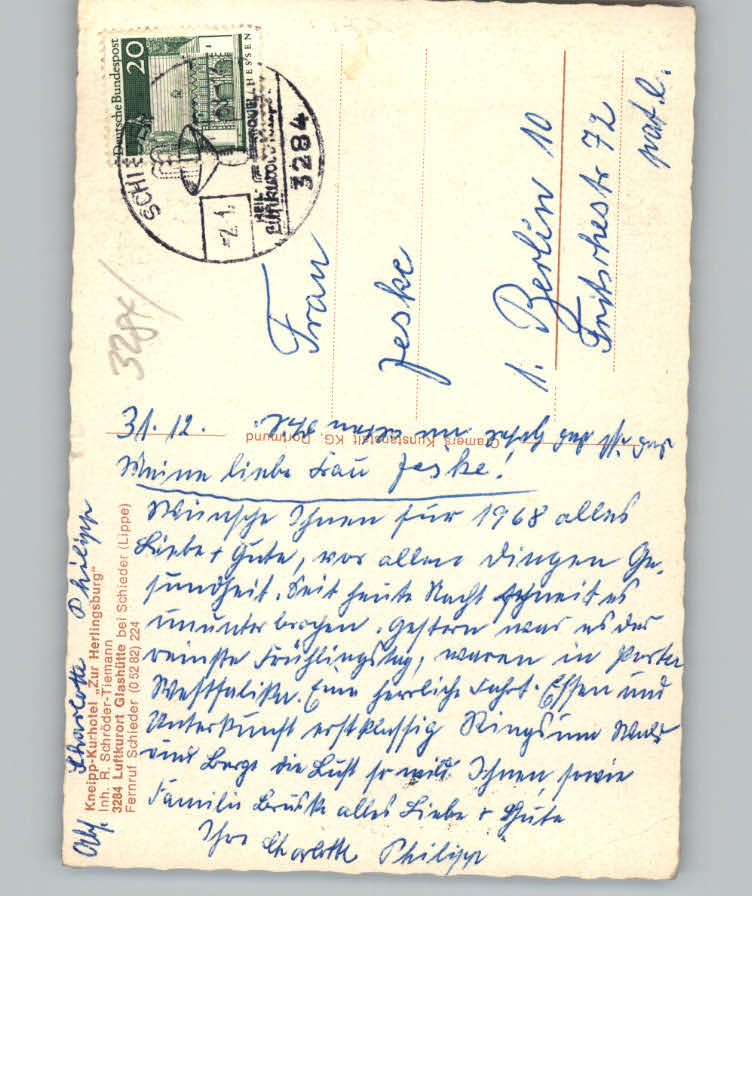 Deutsche Bundespost
20
HESSEN
SCHIEDER
-2.1.
3284
Luftkurort
3284
Frau
Jeske
1. Berlin 10
Fritschestr 72
part. l.
Cramers Kunstanstalt KG, Dortmund
31. 12.
Meine liebe Frau Jeske!
Wünsche Ihnen für 1968 alles
Liebe + Gute, vor allen Dingen Ge-
sundheit. Seit heute Nacht schneit es
ununterbrochen. Gestern war es der
reinste Frühlingstag, waren in Porta
Westfalika. Eine herrliche Fahrt. Essen und
Unterkunft erstklassig Ringsum Wald
und Berge die Luft so mild. Ihnen, sowie
Familie Bruske alles Liebe + Gute
Ihre Charlotte Philipp
Abs. Charlotte Philipp
Kneipp-Kurhotel „Zur Herlingsburg"
Inh. R. Schröder-Tiemann
3284 Luftkurort Glashütte bei Schieder (Lippe)
Fernruf Schieder (0 52 82) 224